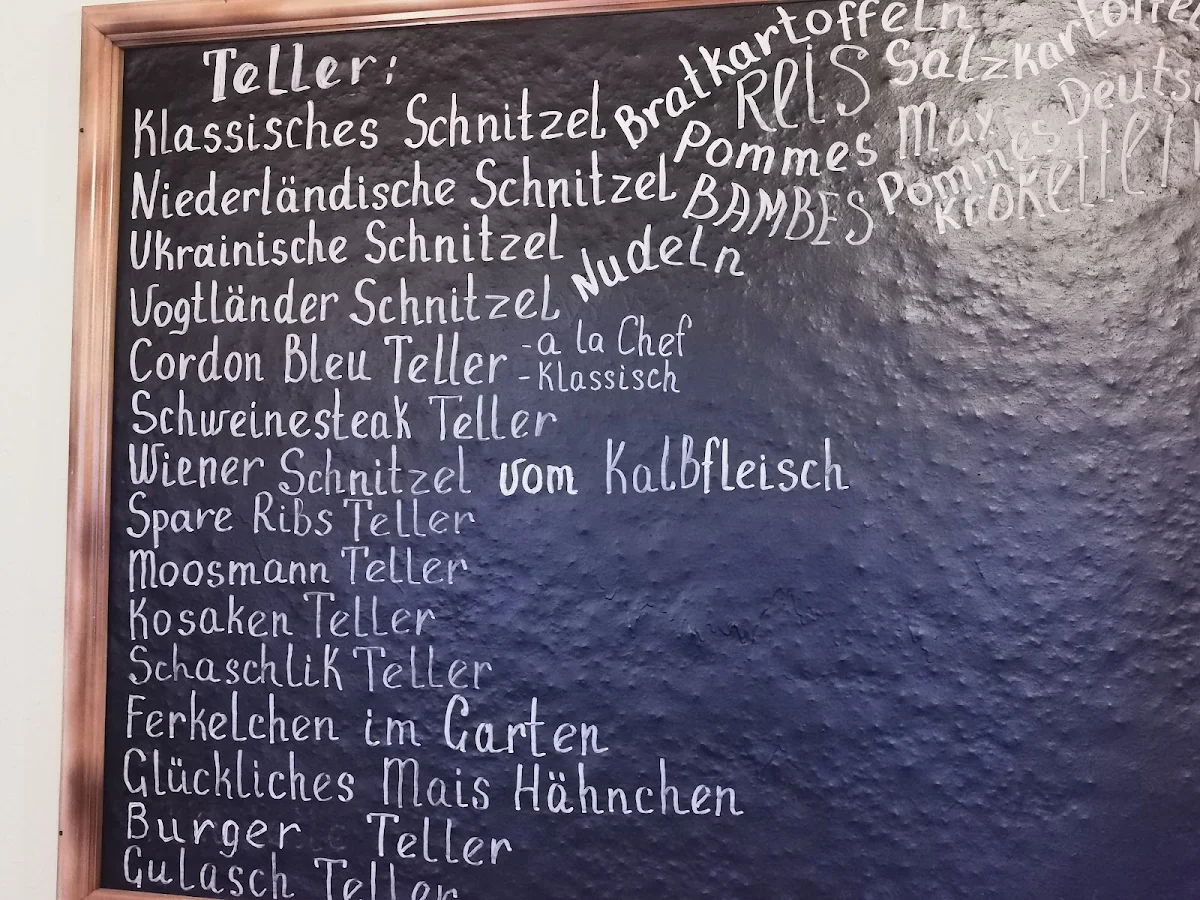 Teller:
Klassisches Schnitzel
Niederländische Schnitzel
Ukrainische Schnitzel
Vogtländer Schnitzel
Cordon Bleu Teller - a la Chef
- Klassisch
Schweinesteak Teller
Wiener Schnitzel vom Kalbfleisch
Spare Ribs Teller
Moosmann Teller
Kosaken Teller
Schaschlik Teller
Ferkelchen im Garten
Glückliches Mais Hähnchen
Burger Teller
Gulasch Teller
Bratkartoffeln
Reis
Pommes
BAMBES
Nudeln
Max
Pommes